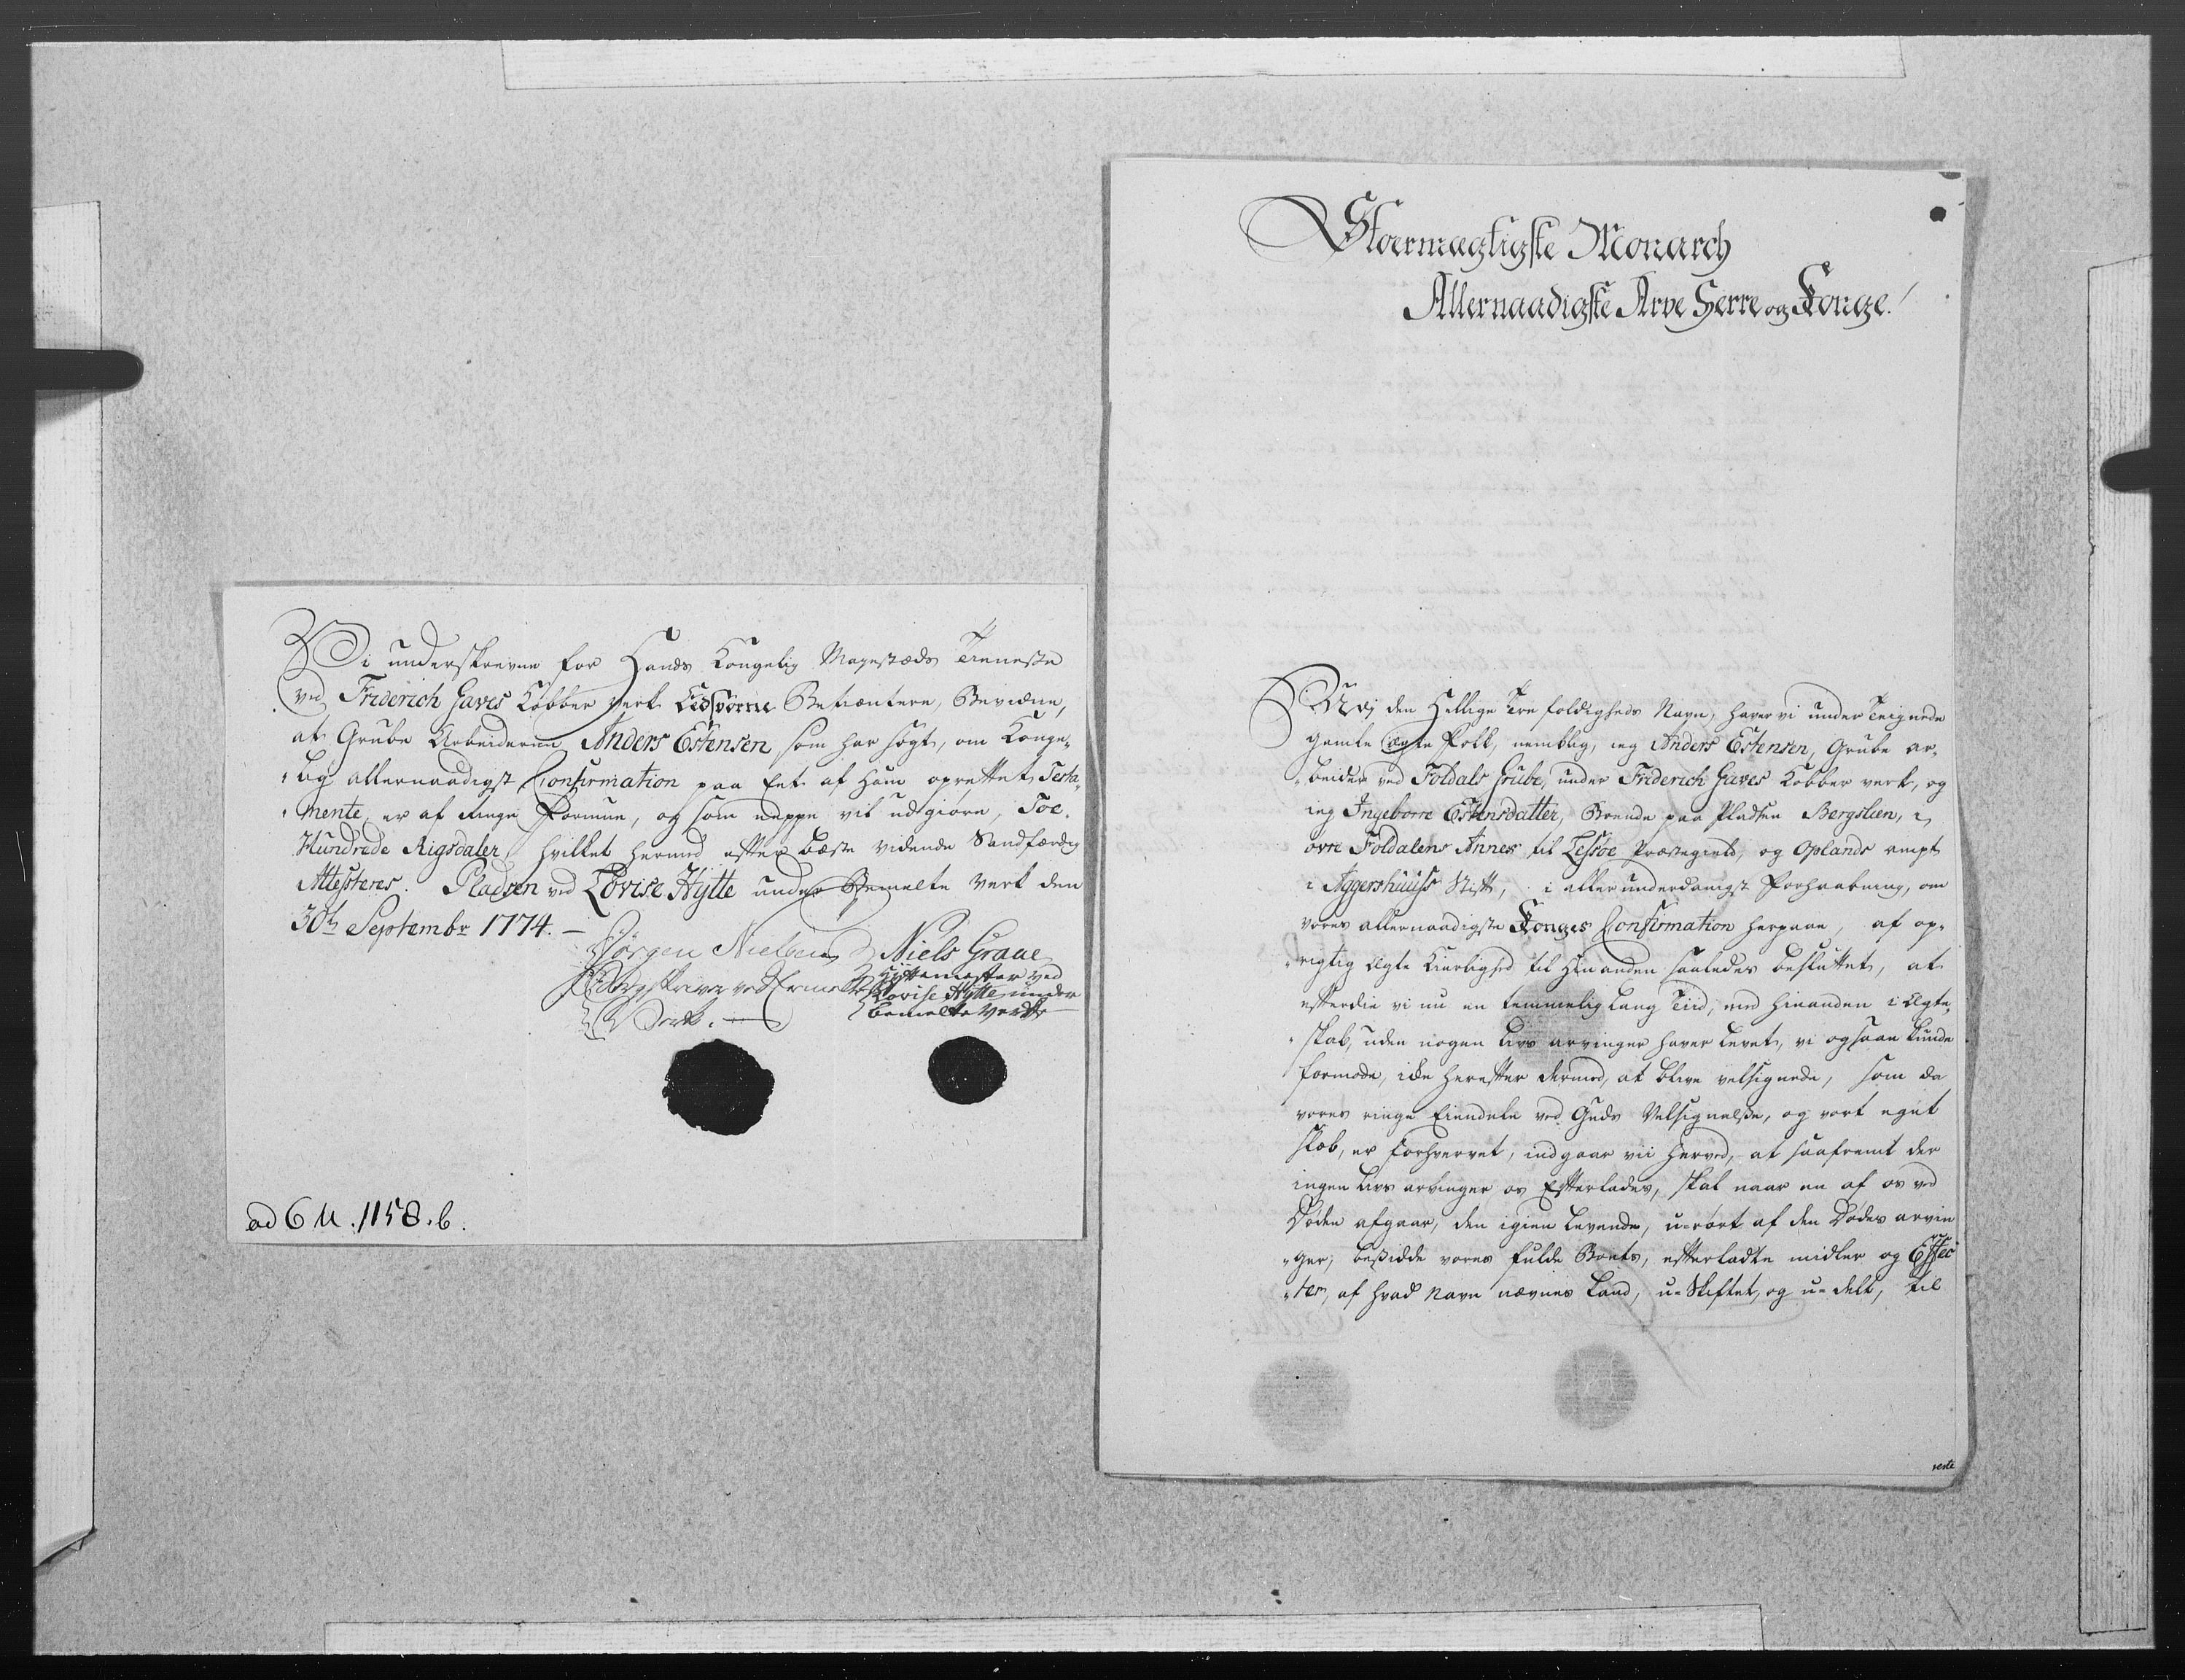 Vi underskrevne for Hands Kongelig Mayestæds Tieneste
ved Friderich Gaves Kobber verk Betientere, Bevidne,
at Grube Arbeideren Anders Estensen, som har søgt, om Konge-
lig allernaadigst Confirmation paa Eet af ham oprettet Testa-
mente, er af Ringe Formue, og som neppe vil udgiøre, Toe
Hundrede Rigsdaler, hvilket hermed efter bæste vidende Sandfærdig
Attesteres. Pladsen ved Lovise Hytte under Bemelte Verk den
30te Septembr 1774. —
Jørgen Nielsen Niels Graae
Hyttemester ved
Lovise Hytte under
bemelte Verk
ad 6 M. 1158. b.
Stoermægtigste Monarch
Allernaadigste Arve Herre og Konge!
I den Hellige Tre foldigheds Navn, haver vi under Teignede
Gamle Egte Folk, nemblig, ieg Anders Estensen, Grube ar-
beider ved Foldals Grube, under Friderich Gaves Kobber verk, og
ieg Ingeborre Estensdatter, Boende paa Pladsen Bergslien, i
øvre Foldalens Annex til Lessøe Præstegield, og Oplands ampt
i Aggershuuss Stift, i allerunderdanigst Forhaabning, om
vores allernaadigste Konges Confirmation herpaae, af op-
rigtig Egte Kierlighed til Hinanden saaledes besluttet, at
efterdie vi nu en temmelig lang Tiid, med hinanden i Egte-
skab, uden nogen Livs arvinger haver Levet, vi og saae kunde
formode, icke herefter dermed, at blive velsignede, som da
vores ringe Eiendele ved Guds Velsignelse, og vort eget
skab, er forhvervet, indgaar vii herved, at saafremt der
ingen Livs arvinger os Efterlades, skal naar en af os ved
Døden afgaar, den igien Levende, u-rørt af den Dødes arvin
-ger, besidde vores fulde Boets, efterladte midler og Effec
-ter, af hvad Navn nævnes kand, u-Skiftet, og u-delt, til